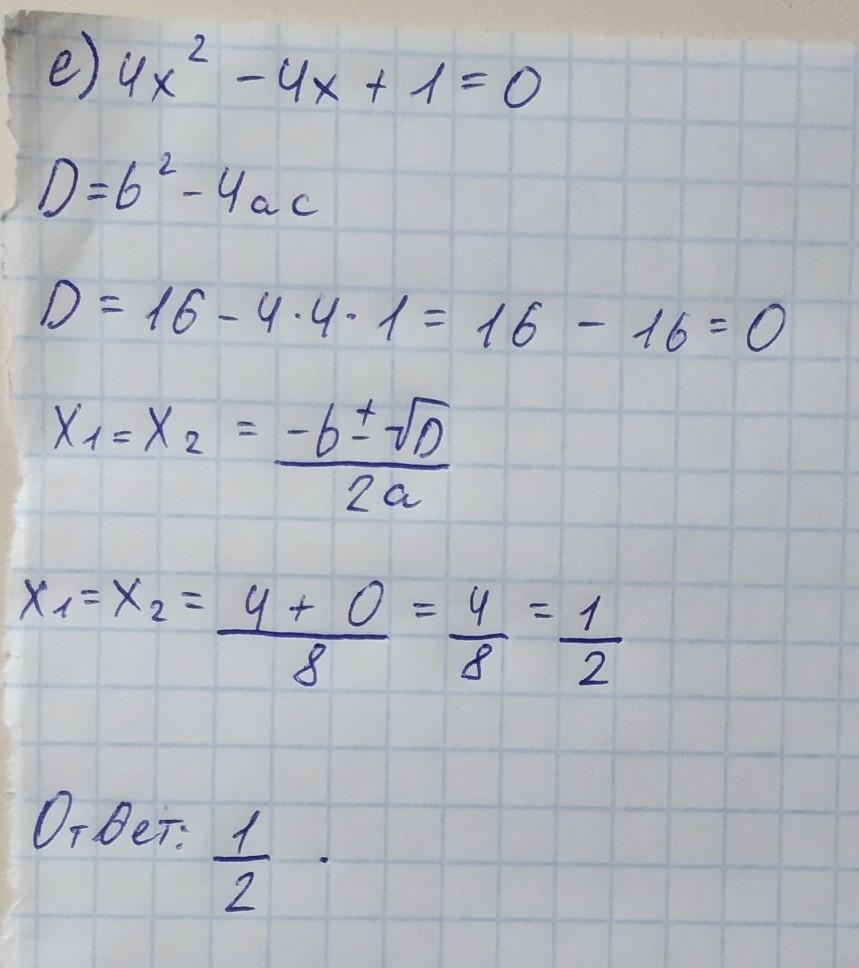 е) 4x² - 4x + 1 = 0
D = b² - 4ac
D = 16 - 4·4·1 = 16 - 16 = 0
x₁ = x₂ = (-b ± √D)/(2a)
x₁ = x₂ = (4 + 0)/8 = 4/8 = 1/2
Ответ: 1/2 .